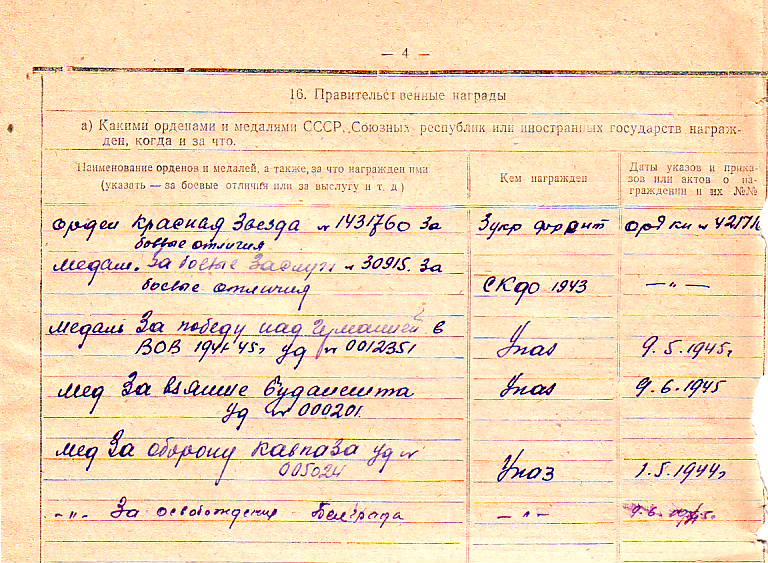 — 4 —
16. Правительственные награды
а) Какими орденами и медалями СССР, Союзных республик или иностранных государств награж-
ден, когда и за что.
Наименование орденов и медалей, а также, за что награжден ими
(указать — за боевые отличия или за выслугу и т. д.)
Кем награжден
Даты указов и прика-
зов или актов о на-
граждении и их №№
орден Красная Звезда № 1431760 За
боевые отличия
3 укр фронт
орд кн № 421716
медаль За боевые Заслуги № 30915. За
боевые отличия
СКФ 1943
— „ —
медаль За победу над Германией в
ВОВ 1941-45г уд № 0012351
Указ
9.5.1945г
мед За взятие Будапешта
уд № 000201
Указ
9.6.1945
мед За оборону Кавказа уд №
005024
Указ
1.5.1944г
— „ — За освобождение Белграда
— „ —
9.6.